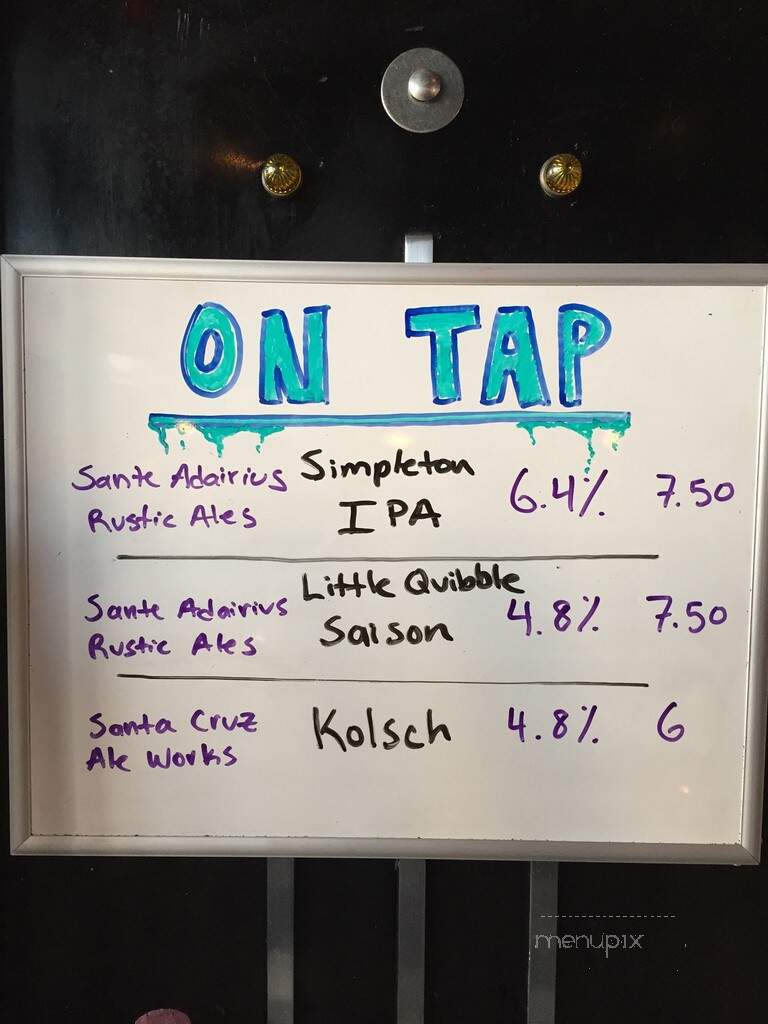 ON TAP
Sante Adairius Simpleton 6.4% 7.50
Rustic Ales IPA
Sante Adairius Little Quibble 4.8% 7.50
Rustic Ales Saison
Santa Cruz Kolsch 4.8% 6
Ale Works
menupix